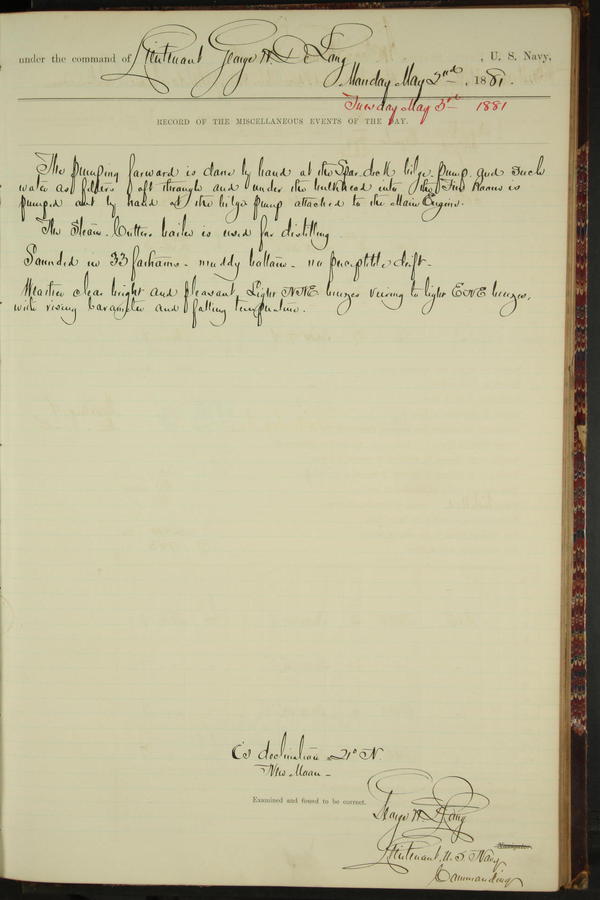 under the command of Lieutenant George W. De Long, U. S. Navy,
Monday May 2nd, 1881.
Tuesday May 3rd 1881
RECORD OF THE MISCELLANEOUS EVENTS OF THE DAY.
The pumping forward is done by hand at the Spar deck bilge pump and such
water as filters aft through and under the bulkhead into the Fire Room is
pumped out by hand at the bilge pump attached to the Main Engine.
The Steam Cutter boiler is used for distilling
Sounded in 33 fathoms - muddy bottom - no perceptible drift -
Weather clear bright and pleasant. Light NNE breezes veering to light ENE breezes,
with rising barometer and falling temperature.
declination 21° N.
New Moon -
Examined and found to be correct.
George W. De Long
Navigator.
Lieutenant, U. S. Navy
Commanding